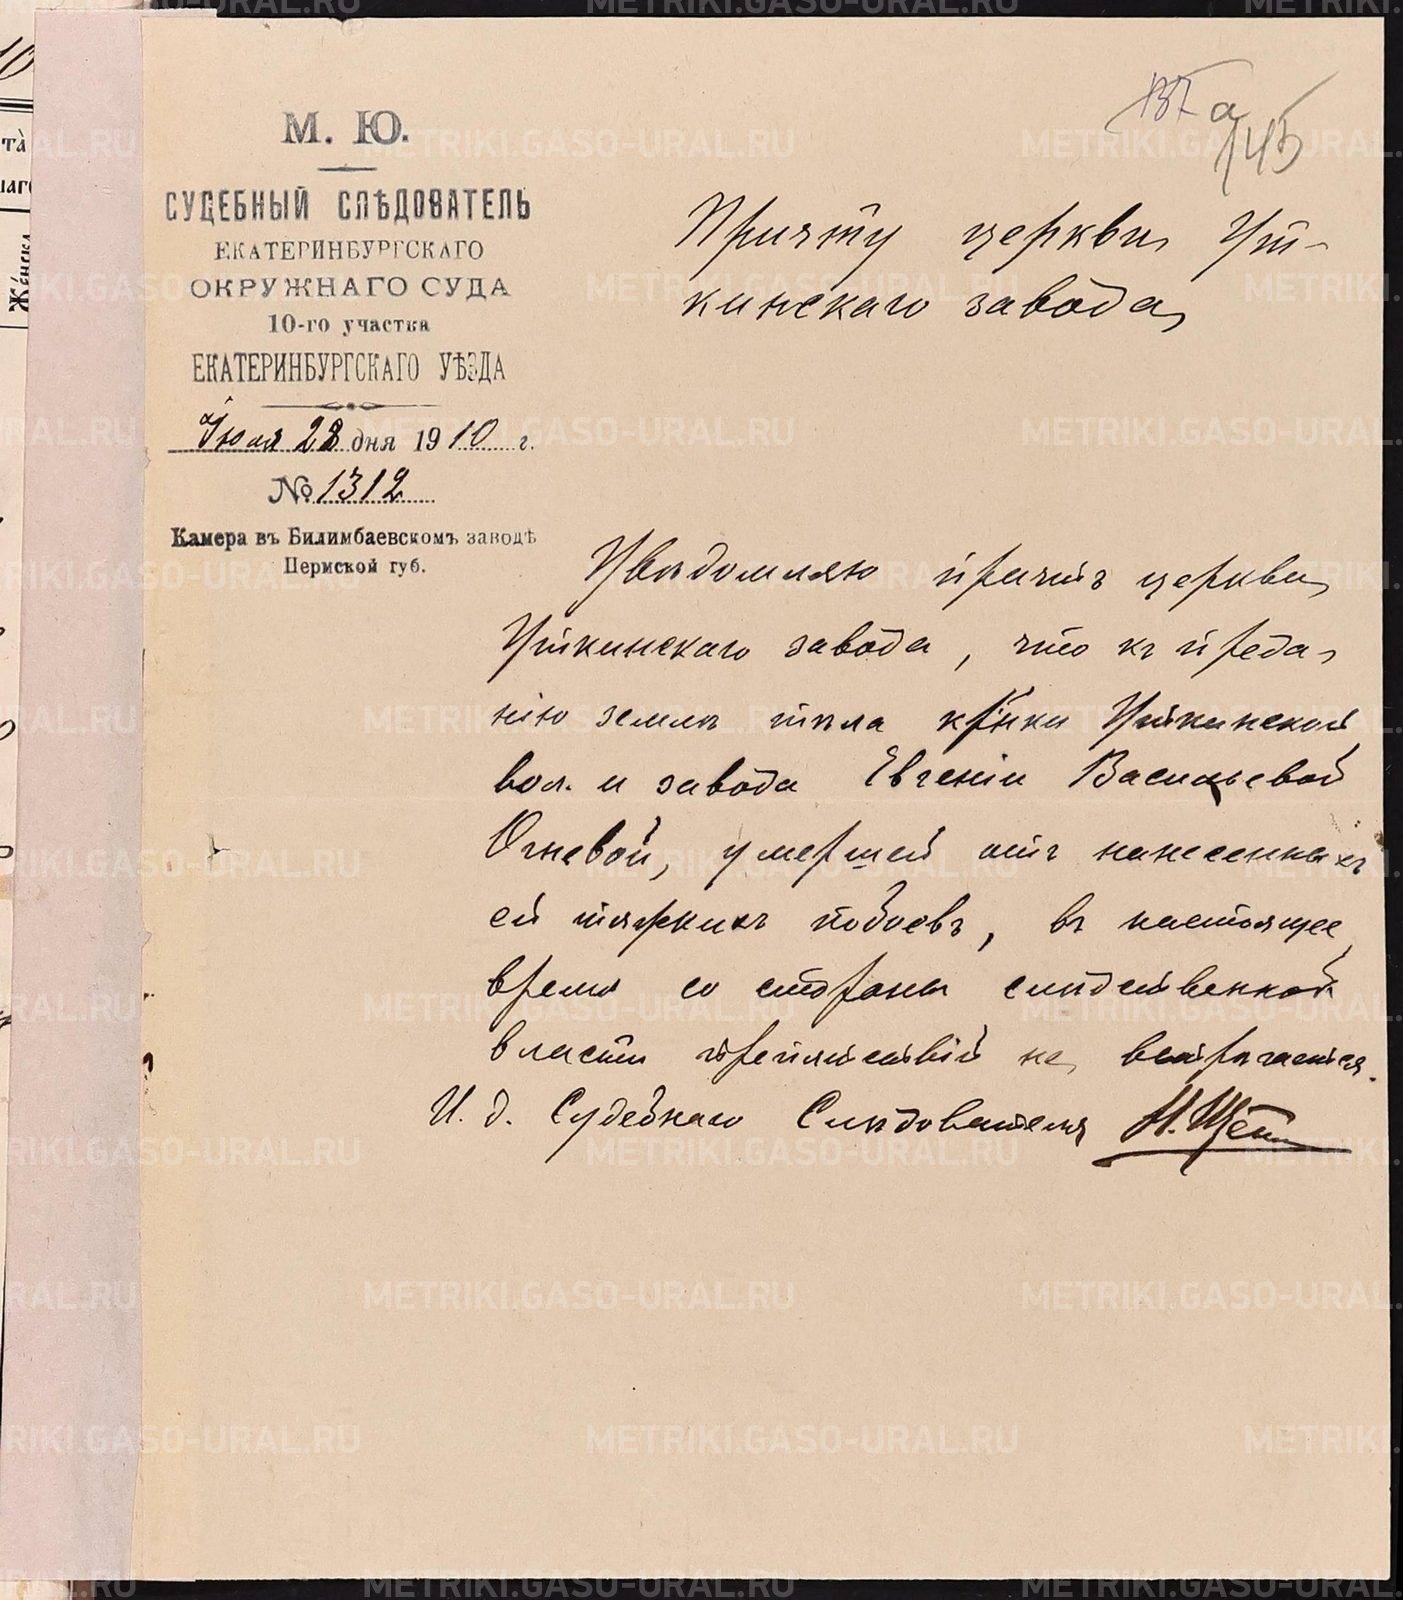 137 а
145
М. Ю.
СУДЕБНЫЙ СЛѢДОВАТЕЛЬ
ЕКАТЕРИНБУРГСКАГО
ОКРУЖНАГО СУДА
10-го участка
ЕКАТЕРИНБУРГСКАГО УѢЗДА
Іюля 28 дня 1910 г.
№ 1312
Камера въ Билимбаевскомъ заводѣ
Пермской губ.
Причту церкви Ут-
кинскаго завода
Увѣдомляю причтъ церкви
Уткинскаго завода, что къ преда-
нію землѣ тѣла кр̃нки Уткинской
вол. и завода Евгеніи Васильевой
Огневой, умершей отъ нанесенныхъ
ей тяжкихъ побоевъ, въ настоящее
время со стороны слѣдственной
власти препятствій не встрѣчается.
И. д. Судебнаго Слѣдователя
METRIKI.GASO-URAL.RU